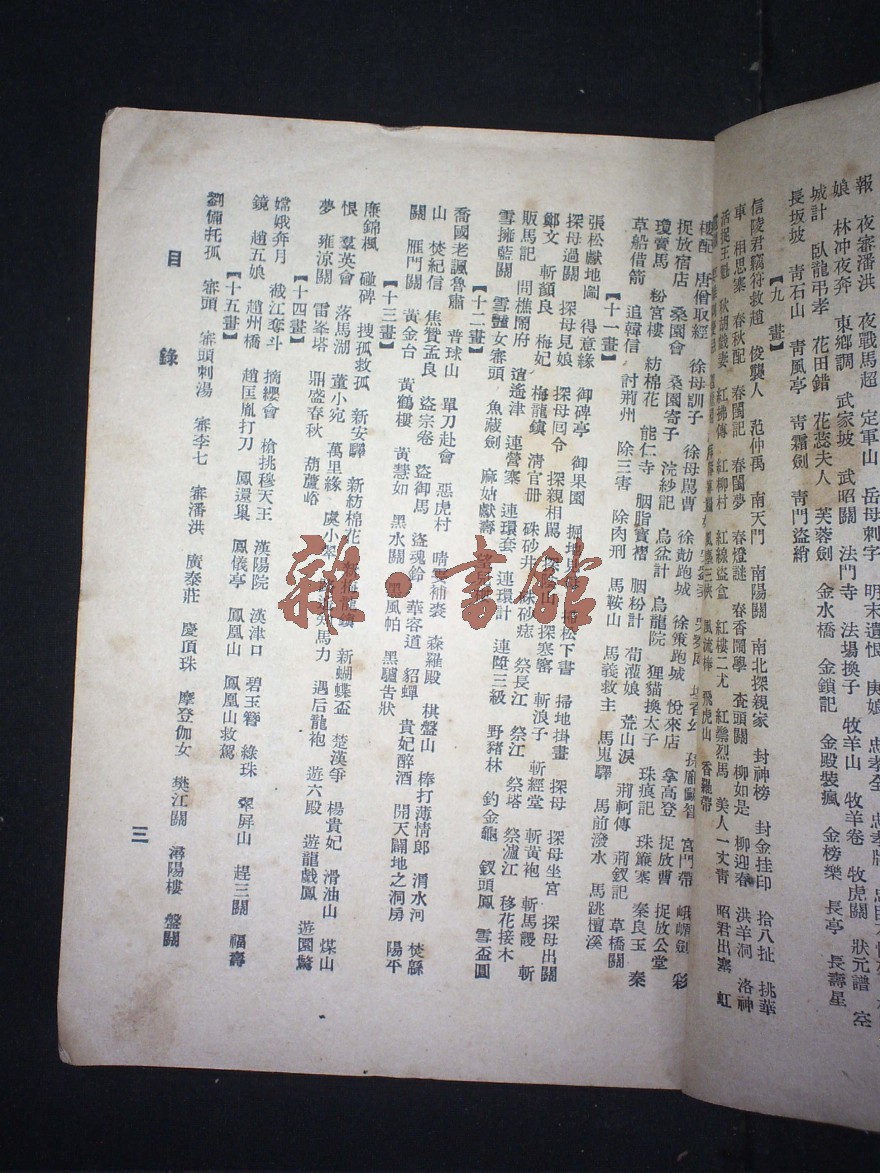 報 夜審潘洪 夜戰馬超 定軍山 岳母刺字 明末遺恨 庚娘 忠孝全
娘 林冲夜奔 東鄉調 武家坡 武昭關 法門寺 法場換子 牧羊山 牧羊卷 牧虎關 狀元譜 空
城計 臥龍弔孝 花田錯 花蕊夫人 芙蓉劍 金水橋 金鎖記 金殿裝瘋 金榜樂 長亭 長壽星
長坂坡 青石山 青風亭 青霜劍 青門盜綃
【九 畫】
信陵君竊符救趙 俊襲人 范仲禹 南天門 南陽關 南北探親家 封神榜 封金挂印 拾八扯 挑華
車 相思寨 春秋配 春閨記 春閨夢 春燈謎 春香鬧學 查頭關 柳如是 柳迎春 洪羊洞 洛神
活捉王魁 秋胡戲妻 紅拂傳 紅柳村 紅線盜盒 紅樓二尤 紅鬃烈馬 美人一丈青 昭君出塞 虹
風流棒 飛虎山 香羅帶
樓配 唐僧取經 徐母訓子 徐母罵曹 徐勣跑城 徐策跑城 悅來店 拿高登 捉放曹 捉放公堂
捉放宿店 桑園會 桑園寄子 浣紗記 烏盆計 烏龍院 狸貓換太子 珠痕記 珠簾寨 秦良玉 秦
瓊賣馬 粉宮樓 紡棉花 能仁寺 胭脂寶褶 胭粉計 荀灌娘 荒山淚 荊軻傳 荊釵記 草橋關
草船借箭 追韓信 討荊州 除三害 除肉刑 馬鞍山 馬義救主 馬嵬驛 馬前潑水 馬跳檀溪
【十一畫】
張松獻地圖 得意緣 御碑亭 御果園 掘地見母 掃松下書 掃地掛畫 探母 探母坐宮 探母出關
探母過關 探母見娘 探母囘令 探親相罵 探陰山 探寒窰 斬浪子 斬經堂 斬黃袍 斬馬謖 斬
鄭文 斬顏良 梅妃 梅龍鎮 清官册 硃砂井 硃砂痣 祭長江 祭江 祭塔 祭瀘江 移花接木
販馬記 問樵鬧府 逍遙津 連營寨 連環套 連環計 連陞三級 野豬林 釣金龜 釵頭鳳 雪盃圓
雪擁藍關 雪豔女審頭 魚藏劍 麻姑獻壽
【十二畫】
喬國老諷魯肅 普球山 單刀赴會 惡虎村 晴雯補裘 森羅殿 棋盤山 棒打薄情郎 渭水河 焚緜
山 焚紀信 焦贊孟良 盜宗卷 盜御馬 盜魂鈴 華容道 貂蟬 貴妃醉酒 開天闢地之洞房 陽平
關 雁門關 黃金台 黃鶴樓 黃慧如 黑水關 黑風帕 黑驢告狀
【十三畫】
廉錦楓 碰碑 搜孤救孤 新安驛 新紡棉花 新蝴蝶盃 楚漢爭 楊貴妃 滑油山 煤山
恨 羣英會 落馬湖 董小宛 萬里緣 虞小翠 路遙知馬力 遇后龍袍 遊六殿 遊龍戲鳳 遊園驚
夢 雍涼關 雷峯塔 鼎盛春秋 葫蘆峪
【十四畫】
嫦娥奔月 截江奪斗 摘纓會 槍挑穆天王 漢陽院 漢津口 碧玉簪 綠珠 翠屏山 趕三關 福壽
鏡 趙五娘 趙州橋 趙匡胤打刀 鳳還巢 鳳儀亭 鳳凰山 鳳凰山救駕
【十五畫】
劉備托孤 審頭 審頭刺湯 審李七 審潘洪 廣泰莊 慶頂珠 摩登伽女 樊江關 潯陽樓 盤關
目 錄
三
雜·書館